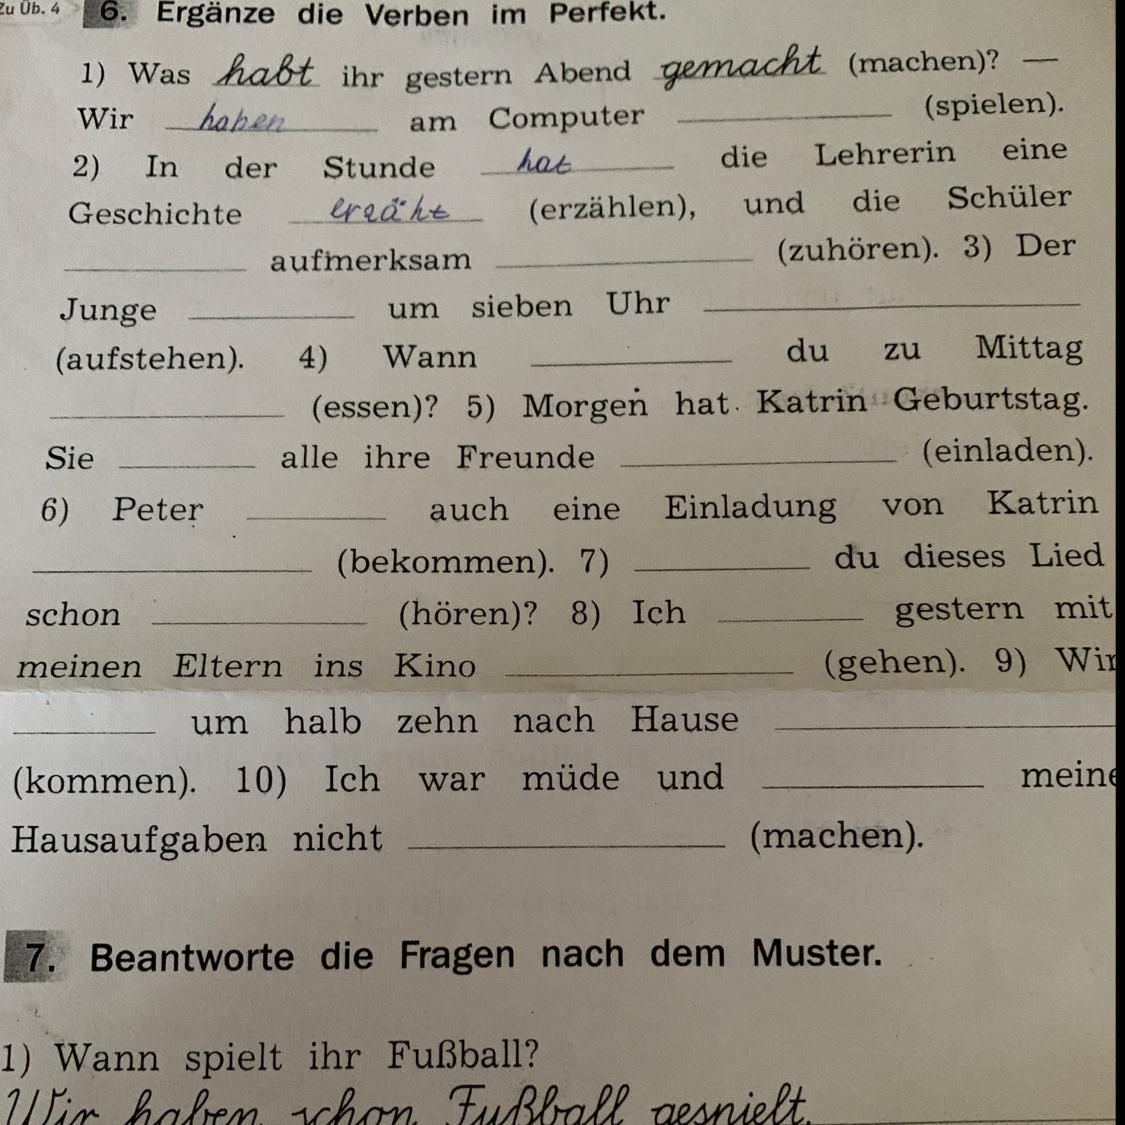 Zu Üb. 4 6. Ergänze die Verben im Perfekt.
1) Was habt ihr gestern Abend gemacht (machen)? —
Wir haben am Computer (spielen).
2) In der Stunde hat die Lehrerin eine
Geschichte erzäht (erzählen), und die Schüler
aufmerksam (zuhören). 3) Der
Junge um sieben Uhr
(aufstehen). 4) Wann du zu Mittag
(essen)? 5) Morgen hat Katrin Geburtstag.
Sie alle ihre Freunde (einladen).
6) Peter auch eine Einladung von Katrin
(bekommen). 7) du dieses Lied
schon (hören)? 8) Ich gestern mit
meinen Eltern ins Kino (gehen). 9) Wir
um halb zehn nach Hause
(kommen). 10) Ich war müde und meine
Hausaufgaben nicht (machen).
7. Beantworte die Fragen nach dem Muster.
1) Wann spielt ihr Fußball?
Wir haben schon Fußball gespielt.